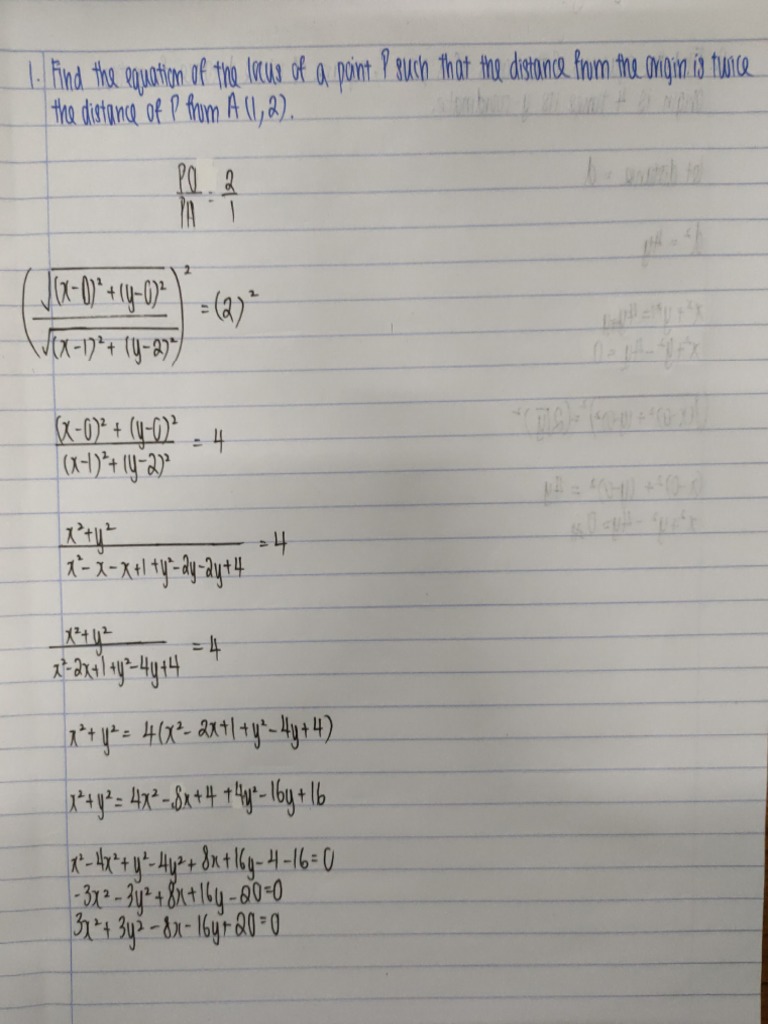 1. Find the equation of the locus of a point P such that the distance from the origin is twice
the distance of P from A (1, 2).
PO/PA = 2/1
(√((x-0)² + (y-0)²) / √((x-1)² + (y-2)²))² = (2)²
((x-0)² + (y-0)²) / ((x-1)² + (y-2)²) = 4
(x²+y²) / (x² - x - x + 1 + y² - 2y - 2y + 4) = 4
(x²+y²) / (x² - 2x + 1 + y² - 4y + 4) = 4
x² + y² = 4(x² - 2x + 1 + y² - 4y + 4)
x² + y² = 4x² - 8x + 4 + 4y² - 16y + 16
x² - 4x² + y² - 4y² + 8x + 16y - 4 - 16 = 0
-3x² - 3y² + 8x + 16y - 20 = 0
3x² + 3y² - 8x - 16y + 20 = 0